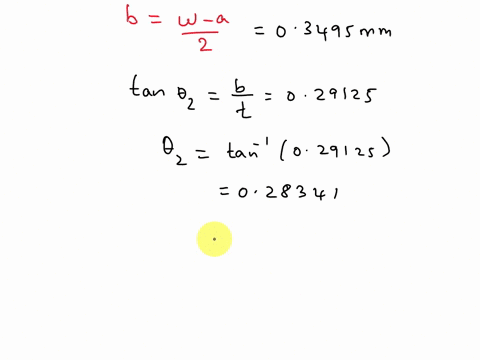 b = (w-a)/2 = 0.3495mm
tan θ₂ = b/t = 0.29125
θ₂ = tan⁻¹(0.29125)
= 0.28341